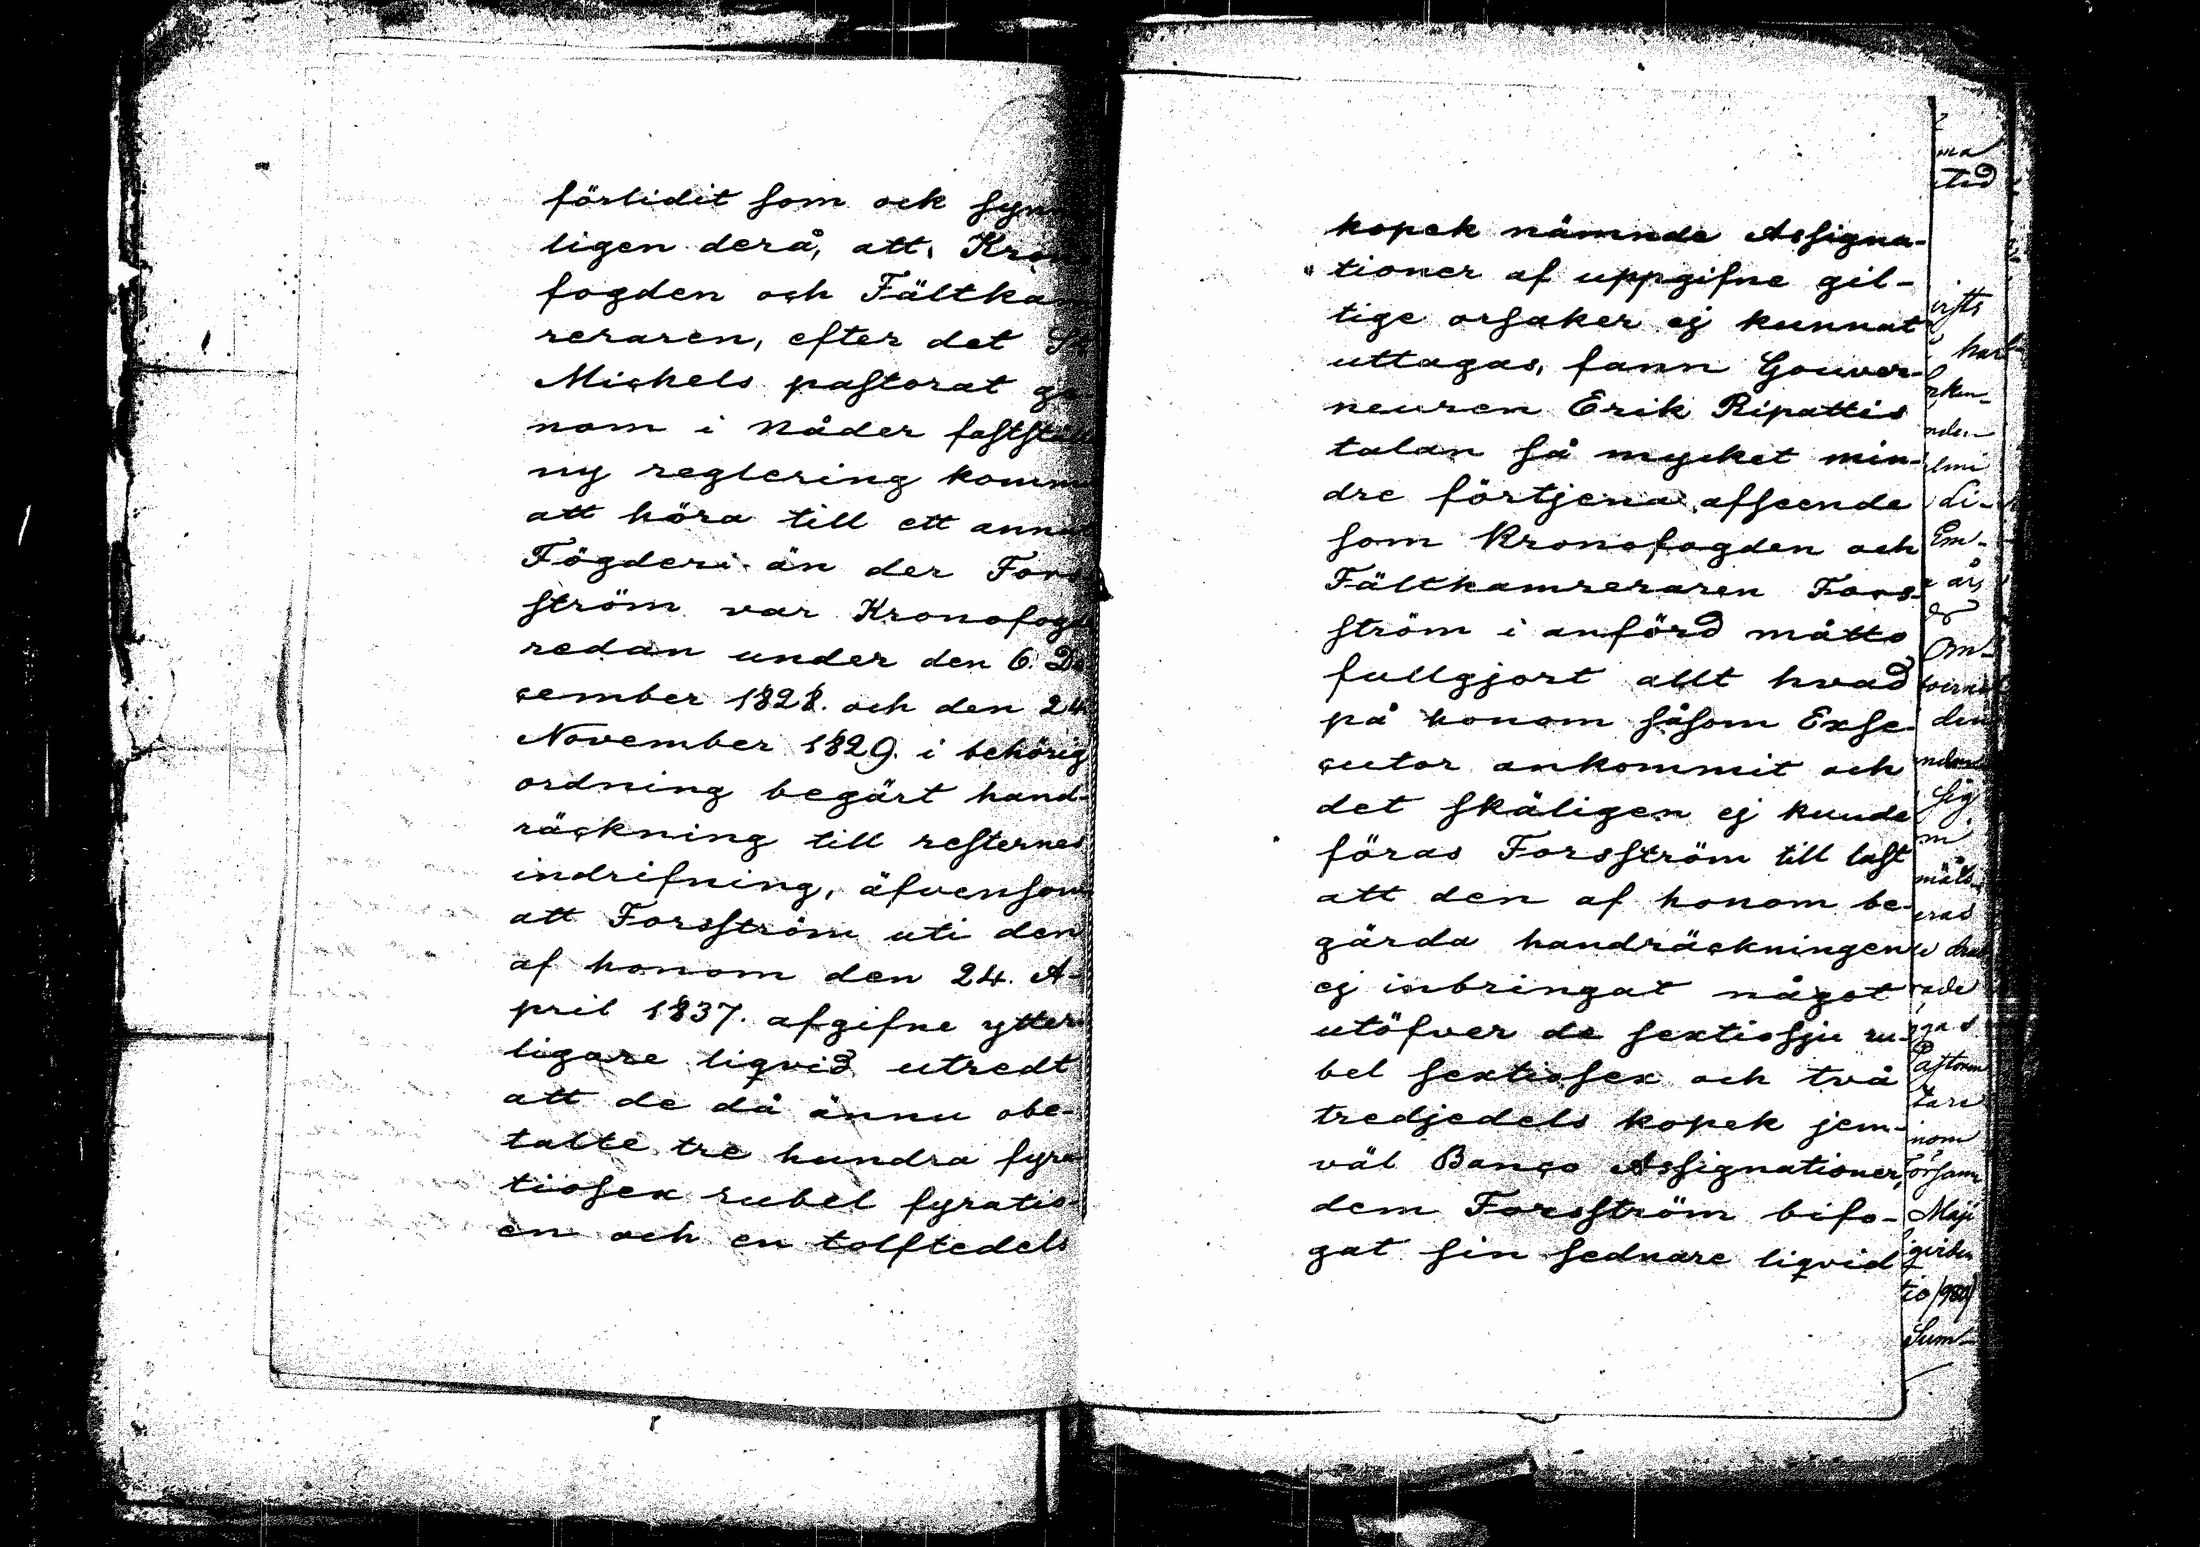 förlidit som ock syn
ligen derå, att, Kron
fogden och Fältkam
reraren, efter det S:t
Michels pastorat ge
nom i Nåder fastställd
ny reglering komm
att höra till ett anna
Fögderi än der Fors
ström var Kronofogd
redan under den 6. De
cember 1828. och den 24
November 1829. i behörig
ordning begärt hand-
räckning till resternes
indrifning, äfvensom
att Forsström uti den
af honom den 24. A-
pril 1837. afgifne ytter-
ligare liqvid utredt
att de då ännu obe-
talte tre hundra fyra
tiosex rubel fyratio
en och en tolftedels
kopek nämnde Assigna-
tioner af uppgifne gil-
tige orsaker ej kunnat
uttagas, fann Gouver-
neuren Erik Ripattis
talan så mycket min-
dre förtjena afseende
som Kronofogden och
Fältkamreraren Fors-
ström i anförd måtto
fullgjort allt hvad
på honom såsom Exse-
cutor ankommit och
det skäligen ej kunde
föras Forsström till last
att den af honom be-
gärda handräckningen
ej inbringat något
utöfver de sextiosju ru-
bel sextiosex och två
tredjedels kopek jem-
väl Banco Assignationer,
dem Forsström bifo-
gat sin sednare liqvid